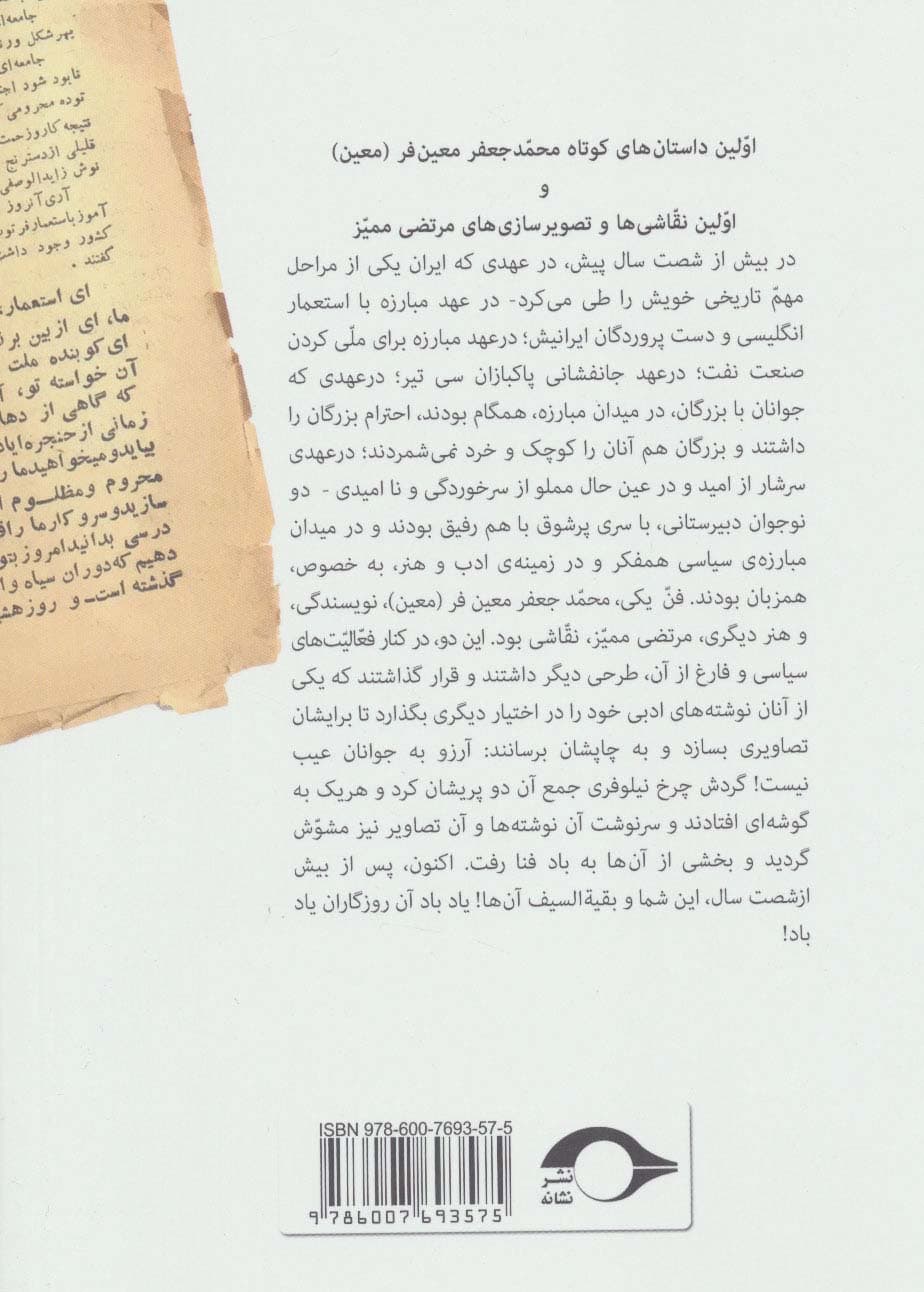 اوّلین داستان‌های کوتاه محمّدجعفر معین‌فر (معین)
و
اوّلین نقّاشی‌ها و تصویرسازی‌های مرتضی ممیّز
در بیش از شصت سال پیش، در عهدی که ایران یکی از مراحل
مهمّ تاریخی خویش را طی می‌کرد- در عهد مبارزه با استعمار
انگلیسی و دست پروردگان ایرانیش؛ درعهد مبارزه برای ملّی کردن
صنعت نفت؛ درعهد جانفشانی پاکبازان سی تیر؛ درعهدی که
جوانان با بزرگان، در میدان مبارزه، همگام بودند، احترام بزرگان را
داشتند و بزرگان هم آنان را کوچک و خرد نمی‌شمردند؛ درعهدی
سرشار از امید و در عین حال مملو از سرخوردگی و نا امیدی - دو
نوجوان دبیرستانی، با سری پرشوق با هم رفیق بودند و در میدان
مبارزه‌ی سیاسی همفکر و در زمینه‌ی ادب و هنر، به خصوص،
همزبان بودند. فنّ یکی، محمّد جعفر معین فر (معین)، نویسندگی،
و هنر دیگری، مرتضی ممیّز، نقّاشی بود. این دو، در کنار فعّالیّت‌های
سیاسی و فارغ از آن، طرحی دیگر داشتند و قرار گذاشتند که یکی
از آنان نوشته‌های ادبی خود را در اختیار دیگری بگذارد تا برایشان
تصاویری بسازد و به چاپشان برسانند: آرزو به جوانان عیب
نیست! گردش چرخ نیلوفری جمع آن دو پریشان کرد و هریک به
گوشه‌ای افتادند و سرنوشت آن نوشته‌ها و آن تصاویر نیز مشوّش
گردید و بخشی از آن‌ها به باد فنا رفت. اکنون، پس از بیش
ازشصت سال، این شما و بقیة‌السیف آن‌ها! یاد باد آن روزگاران یاد
باد!
جامعه‌ا
بهرشکل ور
جامعه‌ای
نابود شود
توده محرومی
نتیجه کاروزحمت
قلیلی ازدسترنج
نوش زایدالوصفی
آری آنروز
آموز باستعمارفر تو
کشور وجود داشت
گفتند .
ای استعمار
ما، ای ازبین بر
ای کوبنده ملت
آن خواسته تو،
که گاهی از دها
زمانی ازحنجره ایاد
بیایدومیخواهیدما ر
محروم ومظلوم
سازیدوسرو کارما راف
درسی بدانیدامروز بتو
دهیم که دوران سیاه وا
گذشته است-و روز هش
نشر
نشانه
ISBN 978-600-7693-57-5
9 786007 693575